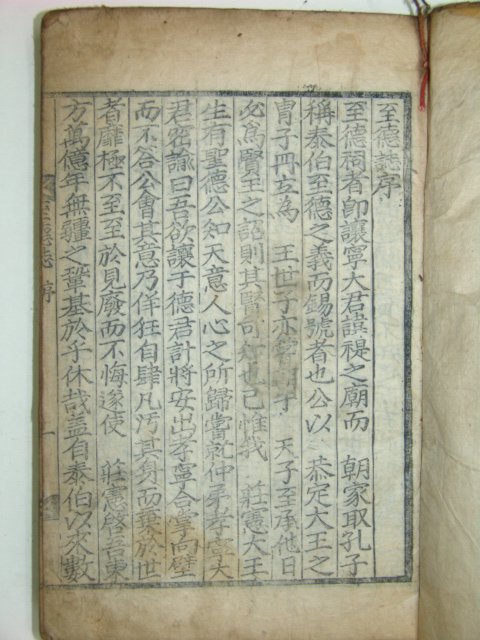 至德誌序
至德祠者卽讓寧大君諱禔之廟而 朝家取孔子
稱泰伯至德之義而錫號者也公以 恭定大王之
冑子冊立爲 王世子亦嘗朝于 天子至承他日
必爲賢王之詔則其賢可知也已惟我 莊憲大王
生有聖德公知天意人心之所歸嘗就仲弟孝寧大
君密諭曰吾欲讓于德君計將安出孝寧合掌向壁
而不答公會其意乃佯狂自肆凡汚其身而棄於世
者靡極不至至於見廢而不悔遂使 莊憲啓吾東
方萬億年無疆之鞏基於乎休哉盖自泰伯以來數
至德誌 序 一